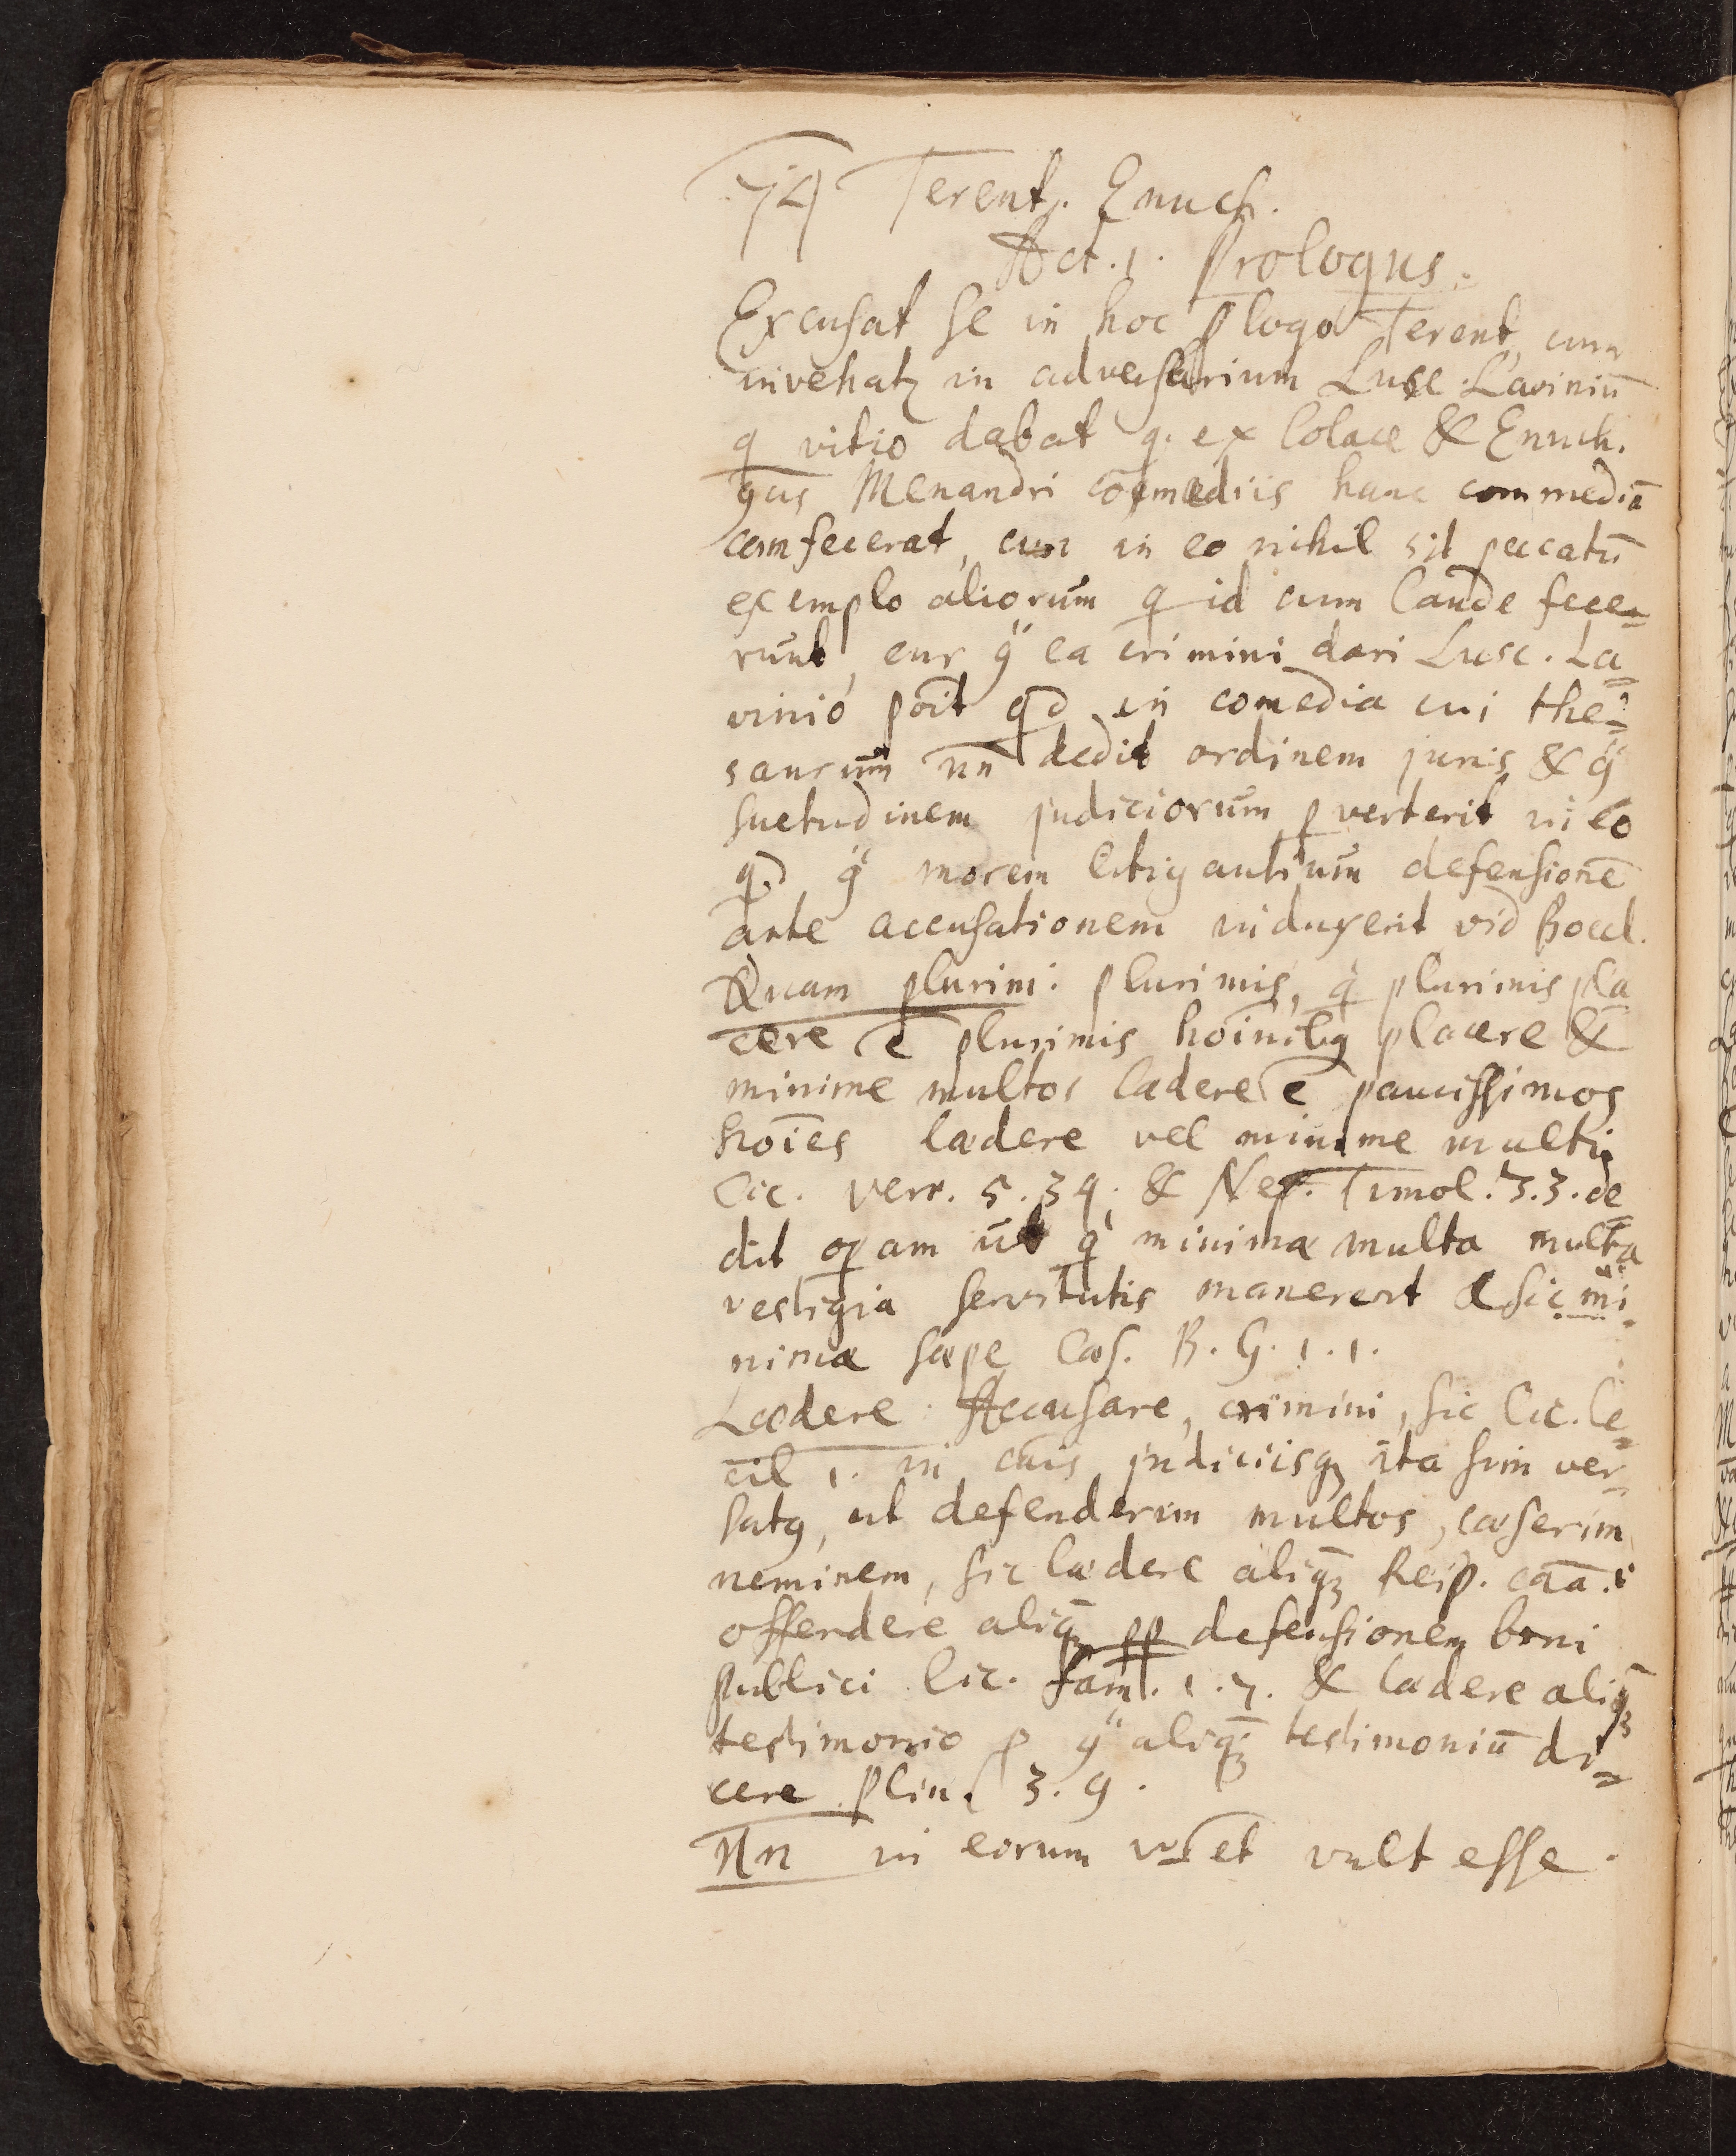 74 Terent. Enuch.
Act. 1. Prologus.
Excusat se in hoc plogo Terent, cum
invehatr in adversarium Lusc. Laviniū
q vitio dabat q. ex Colace & Enuch.
gus Menandri cōmediis hanc commediā
comfecerat, cum in eo nihil sit peccatū
exemplo aliorum q id cum laude fece=
runt, cur q ea crimini dari Lusc. La=
vinio poīt qd in comedia cui the=
saurum nn dedit ordinem juris & q
suetudinem judiciorum pverterit in eo
qd q morem litigantium defensionē
ante accusationem induxerit vid Boecl.
Quam plurim: plurimis, q plurimis pla
cere ē plurimis hoīnibq placere &
minime multos lædere ē paucissimos
hoīes lædere vel minime multis
Cic. Verr. 5. 34. & Nep. Timol. 3.3. de
dit opam ut q minimæ multa multa
vestigia servitutis manerent & sic mi=
nimæ sæpe Cæs. B. G. 1. 1.
Lædere: Accusare, crimini, sic Cic. Ce=
cil 1. in cāis judiciisq ita sum ver=
satq, ut defenderim multos, læserim
neminem, sic lædere aliqz Reip. caā. i
offendere aliqz pp defensionem boni
publici Cic. fam. 1. 7. & lædere aliqz
testimonio p q aliqz testimoniū di=
cere Plin. 3. 9.
Nn in eorum vult esse.